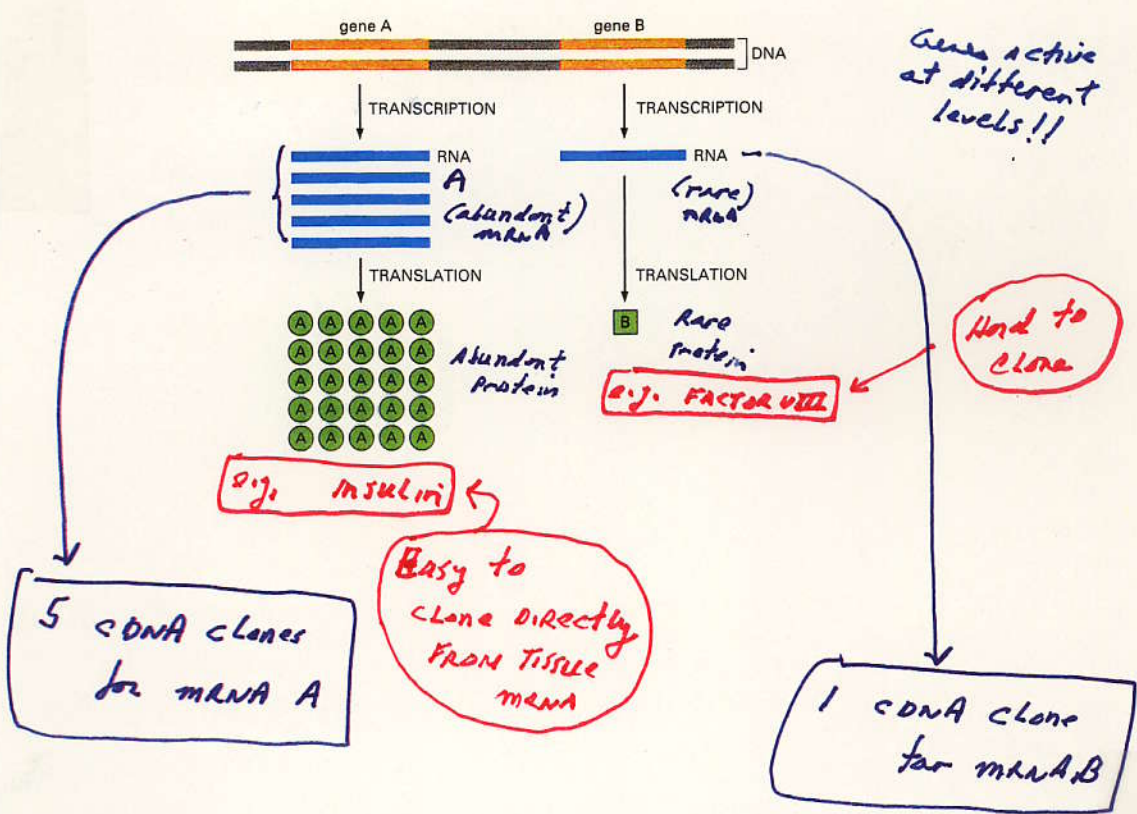 gene A
gene B
DNA
Genes active
at different
levels!!
TRANSCRIPTION
TRANSCRIPTION
RNA
A
(abundont)
mRNA
RNA
(rare)
mRNA
TRANSLATION
TRANSLATION
A A A A A
A A A A A
A A A A A
A A A A A
A A A A A
Abundont
Protein
B
Rare
Protein
e.g. FACTOR VIII
Hard to
Clone
e.g. Insulin
Easy to
Clone Directly
FROM TISSUE
mRNA
5 cDNA Clones
for mRNA A
1 cDNA Clone
for mRNA B